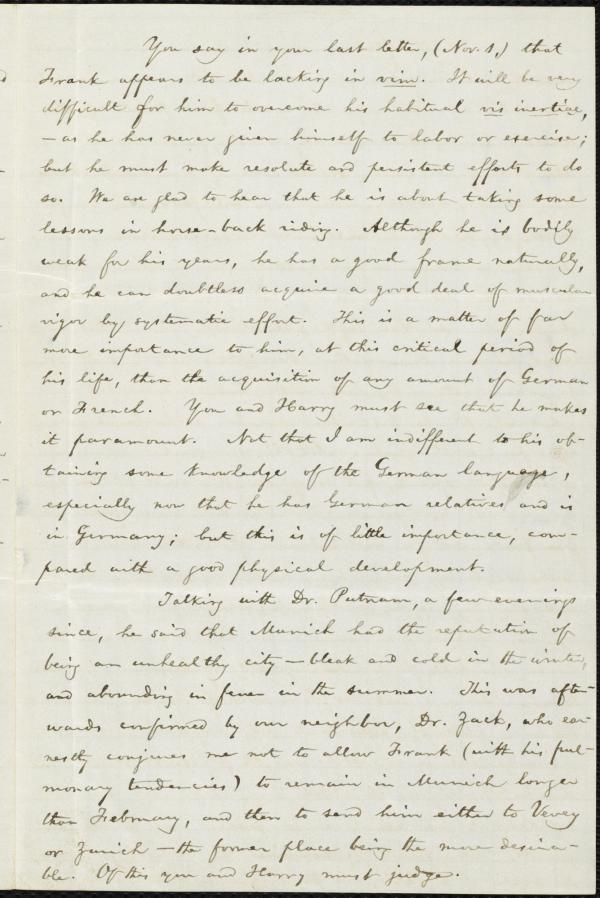 You say in your last letter, (Nov. 1,) that
Frank appears to be lacking in vim. It will be very
difficult for him to overcome his habitual vis inertiae,
— as he has never given himself to labor or exercise;
but he must make resolute and persistent efforts to do
so. We are glad to hear that he is about taking some
lessons in horse-back riding. Although he is bodily
weak for his years, he has a good frame naturally,
and he can doubtless acquire a good deal of muscular
vigor by systematic effort. This is a matter of far
more importance to him, at this critical period of
his life, than the acquisition of any amount of German
or French. You and Harry must see that he makes
it paramount. Not that I am indifferent to his ob-
taining some knowledge of the German language,
especially now that he has German relatives and is
in Germany; but this is of little importance, com-
pared with a good physical development.
Talking with Dr. Putnam, a few evenings
since, he said that Munich had the reputation of
being an unhealthy city — bleak and cold in the winter,
and abounding in fever in the summer. This was after-
wards confirmed by our neighbor, Dr. Zack, who ear-
nestly conjures me not to allow Frank (with his pul-
monary tendencies) to remain in Munich longer
than February, and then to send him either to Vevey
or Zurich — the former place being the more desira-
ble. Of this you and Harry must judge.